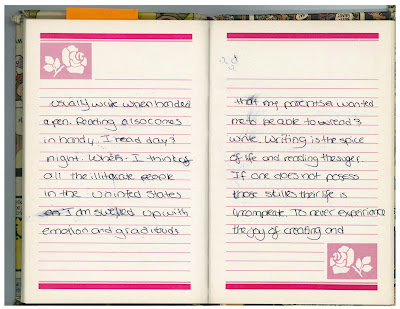 usually write when handed
a pen. Reading also comes
in handy. I read day &
night. When I think of
all the illitarate people
in the Uninted States
I am swelled up with
emotion and gradituds
that my parents wanted
me to be able to read &
write. Writing is the spice
of life and reading the suger.
If one does not posess
those skilles their life is
incomplete. To never experience
the joy of creating and